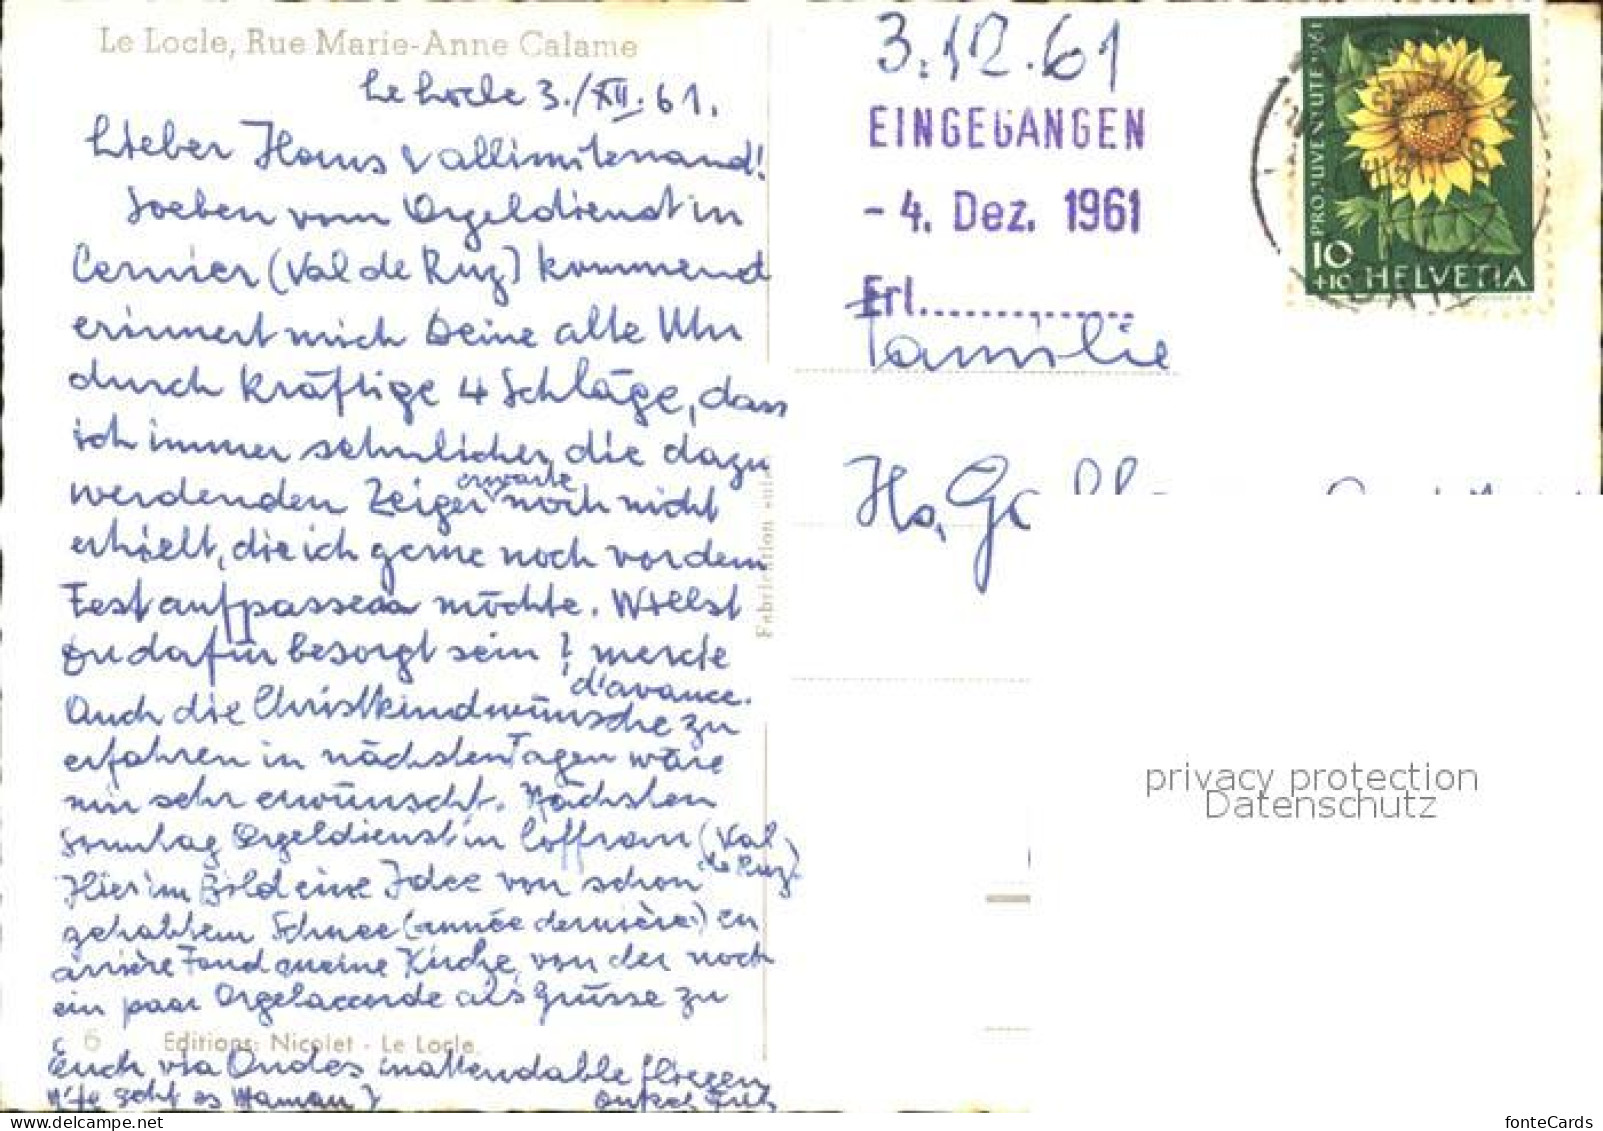 Le Locle, Rue Marie-Anne Calame
Le Locle 3./XII.61.
Lieber Hans & allimitenand!
Soeben vom Orgeldienst in
Cernier (Val de Ruz) kommend
erinnert mich Deine alte Uhr
durch kräftige 4 Schläge, dass
ich immer sehnlicher die dazu
werdenden Zeiger erwarte noch nicht
erhielt, die ich gerne noch vor dem
Fest aufpassen möchte. Willst
Du dafür besorgt sein? mercie
d'avance.
Auch die Christkindwünsche zu
erfahren in nächsten Tagen wäre
mir sehr erwünscht. Nächsten
Sonntag Orgeldienst in Coffran (Val
de Ruz)
Hier im Bild eine Idee von schon
gehabtem Schnee (année dernière) en
arrière Fond meine Kirche, von der noch
ein paar Orgelaccorde als Grüsse zu
6 Editions: Nicolet - Le Locle
Euch via Ondes inattendable fliegen
Wie geht es Maman?
Onkel
Fabrication
3.12.61
EINGEGANGEN
- 4. Dez. 1961
Erl..............
Familie
Hs.
PRO JUVENTUTE 1961
10
+10 HELVETIA
privacy protection
Datenschutz
fonteCards